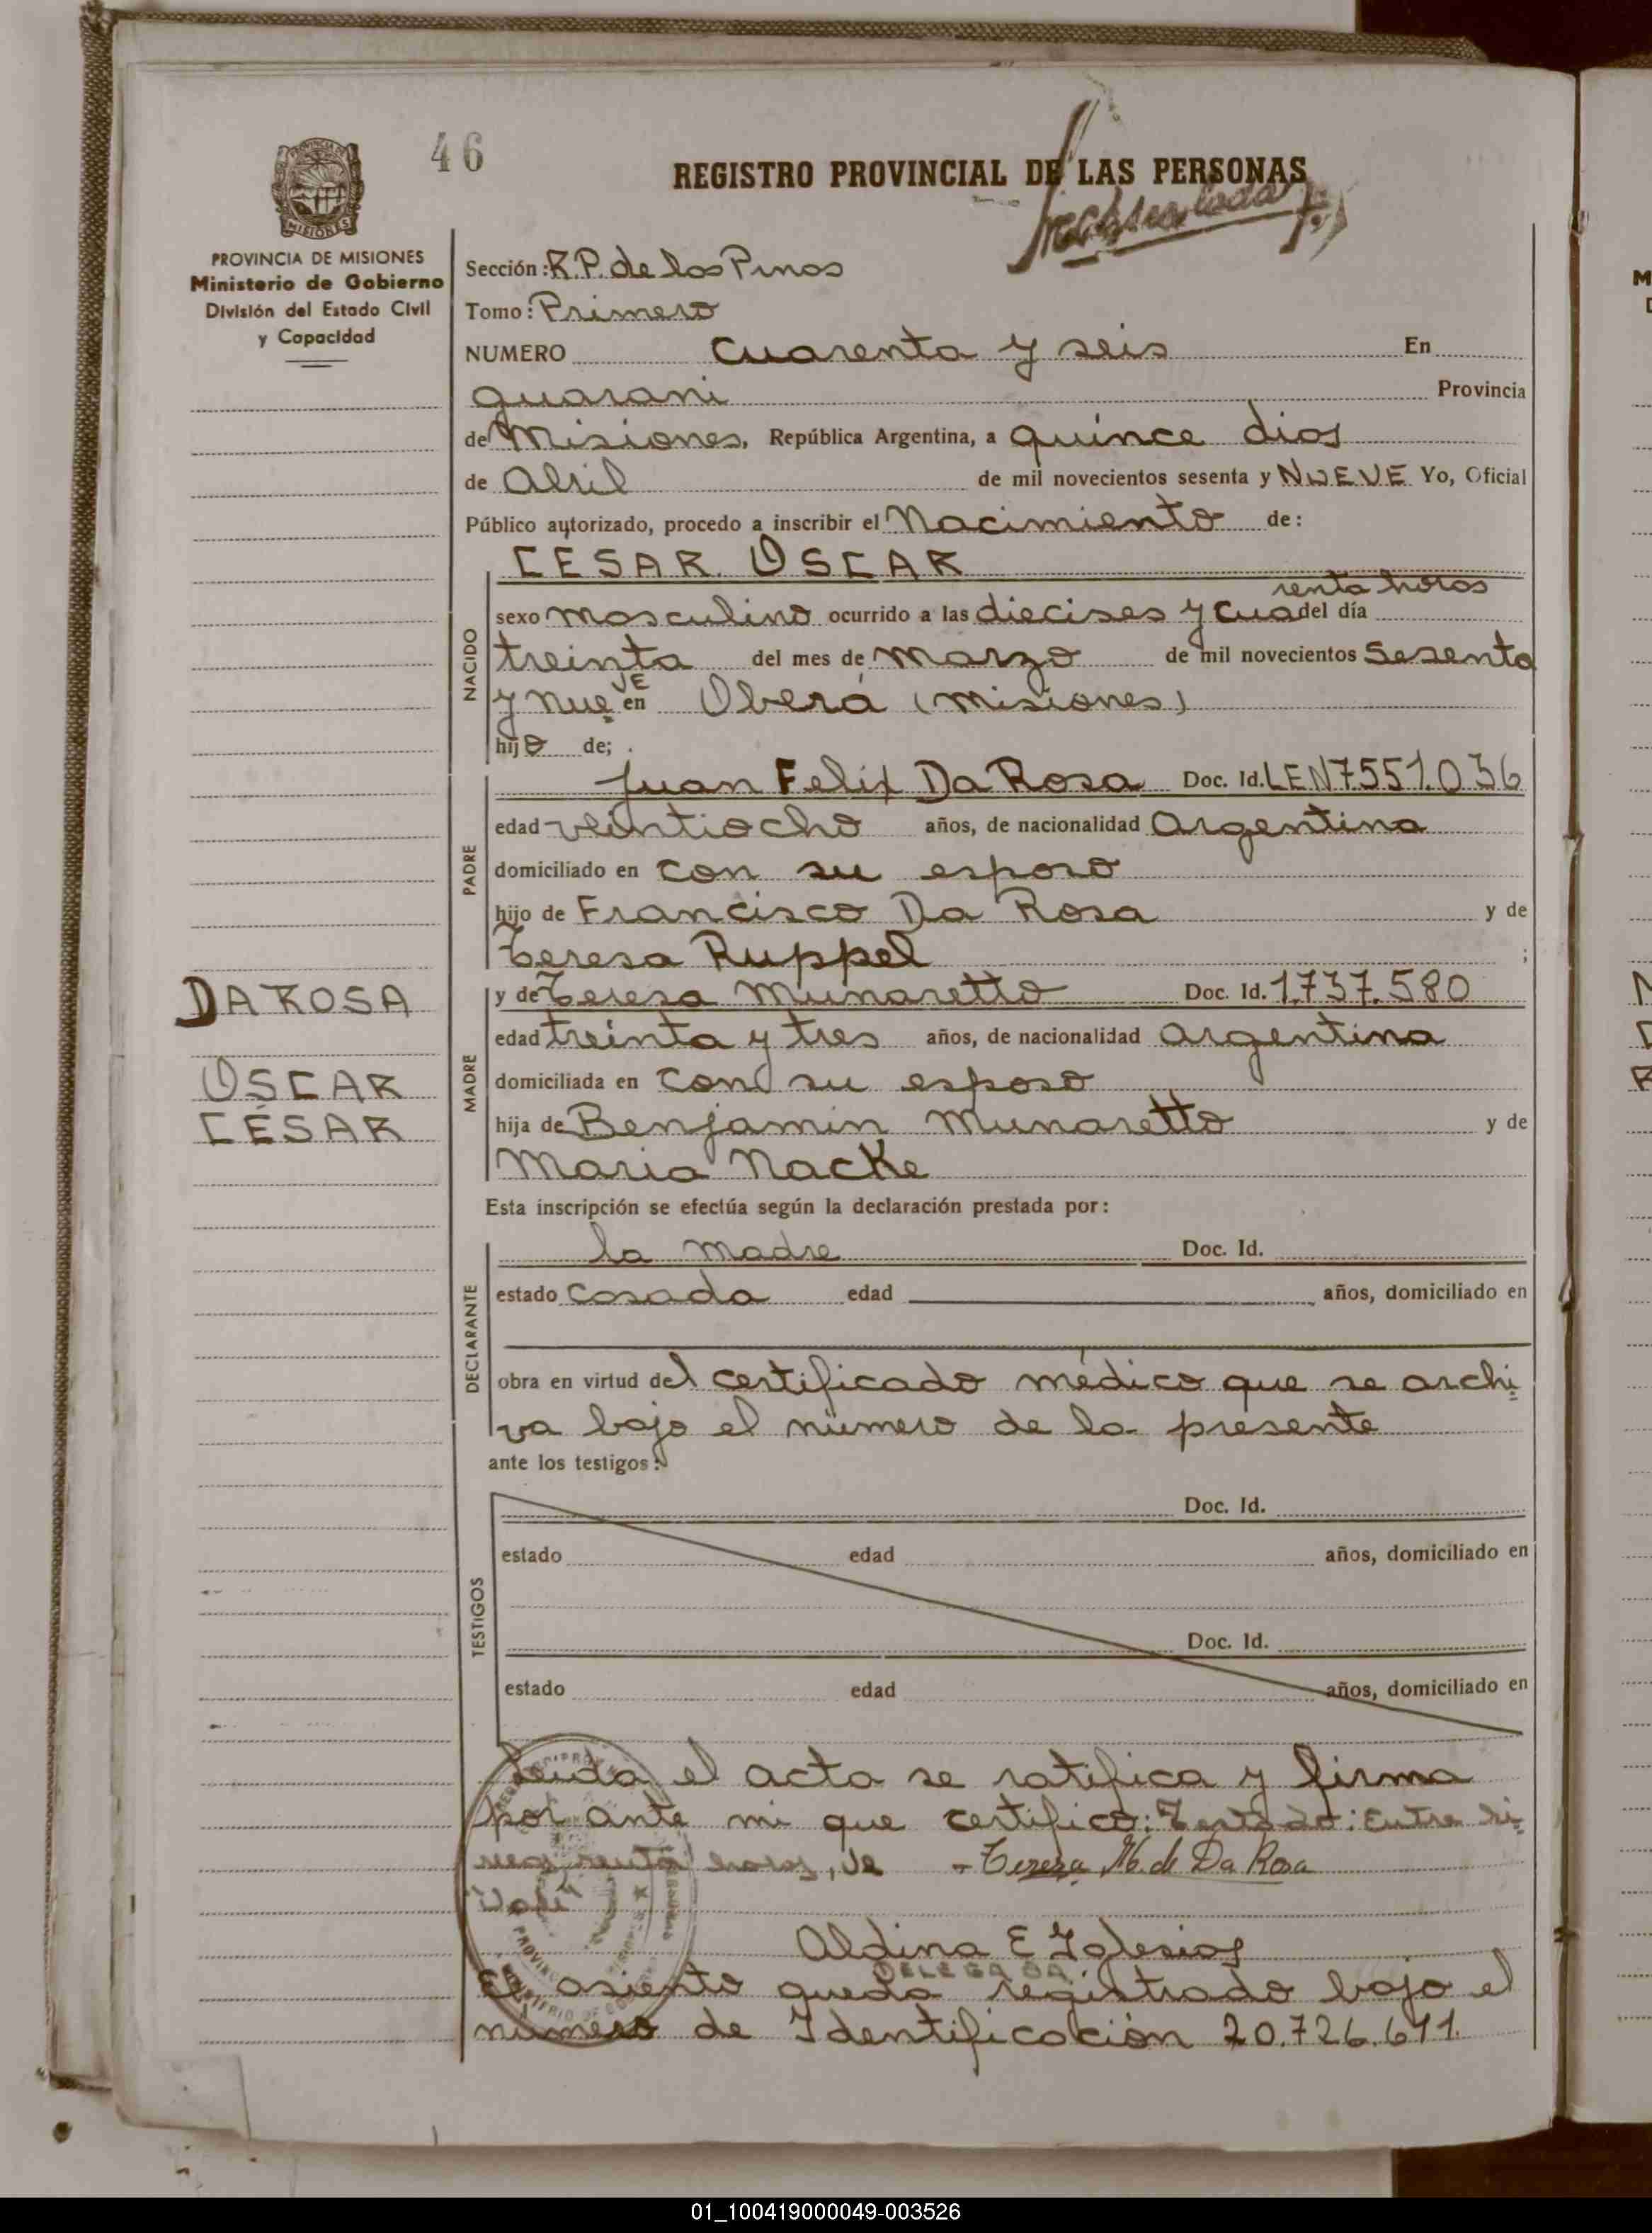 46
REGISTRO PROVINCIAL DE LAS PERSONAS
PROVINCIA DE MISIONES
Ministerio de Gobierno
División del Estado Civil
y Capacidad
Sección: R.P. de los Pinos
Tomo: Primero
NUMERO cuarenta y seis En
guarani Provincia
de Misiones, República Argentina, a quince dias
de Abril de mil novecientos sesenta y NUEVE Yo, Oficial
Público autorizado, procedo a inscribir el Nacimiento de:
CESAR OSCAR
renta horas
sexo masculino ocurrido a las diecises y cua del día
treinta del mes de marzo de mil novecientos sesenta
VE
y nue en Oberá (misiones)
hijo de;
NACIDO
Juan Felix Da Rosa Doc. Id. LEN7551.036
edad veintiocho años, de nacionalidad Argentina
domiciliado en con su esposo
hijo de Francisco Da Rosa y de
Teresa Ruppel ;
PADRE
DA ROSA
OSCAR
CÉSAR
y de Teresa Munaretto Doc. Id. 1.737.580
edad treinta y tres años, de nacionalidad argentina
domiciliada en con su esposo
hija de Benjamin Munaretto y de
Maria Nacke
MADRE
Esta inscripción se efectúa según la declaración prestada por:
la madre Doc. Id.
estado casada edad años, domiciliado en
obra en virtud del certificado médico que se archi
va bajo el número de la presente
DECLARANTE
ante los testigos:
Doc. Id.
estado edad años, domiciliado en
Doc. Id.
estado edad años, domiciliado en
TESTIGOS
Leida el acta se ratifica y firma
por ante mi que certifico: Testado: Entre lí
neas renta horas, ve - Teresa M. de Da Rosa
Vale
Aldina E Iglesias
DELEGADA
El asiento queda registrado bajo el
número de Identificación 20.726.611.
01_100419000049-003526